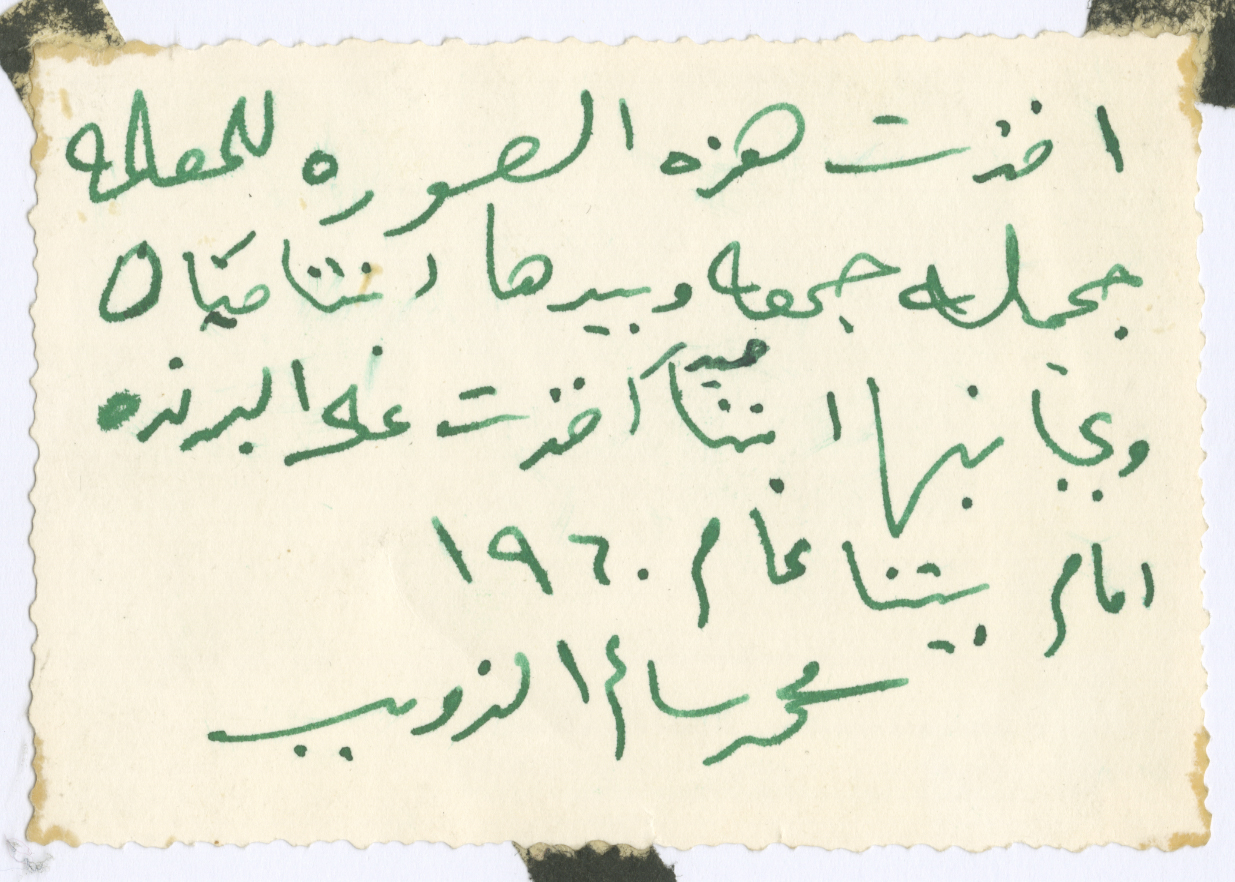 اخذت هذه الصوره للمعلمه
جميله جمعه وبيدها ابنتنا ميتان
وبجانبها ابنتنا ميد اخذت على البرنده
امام بيتنا عام ١٩٦٠
محمد سالم الذويب